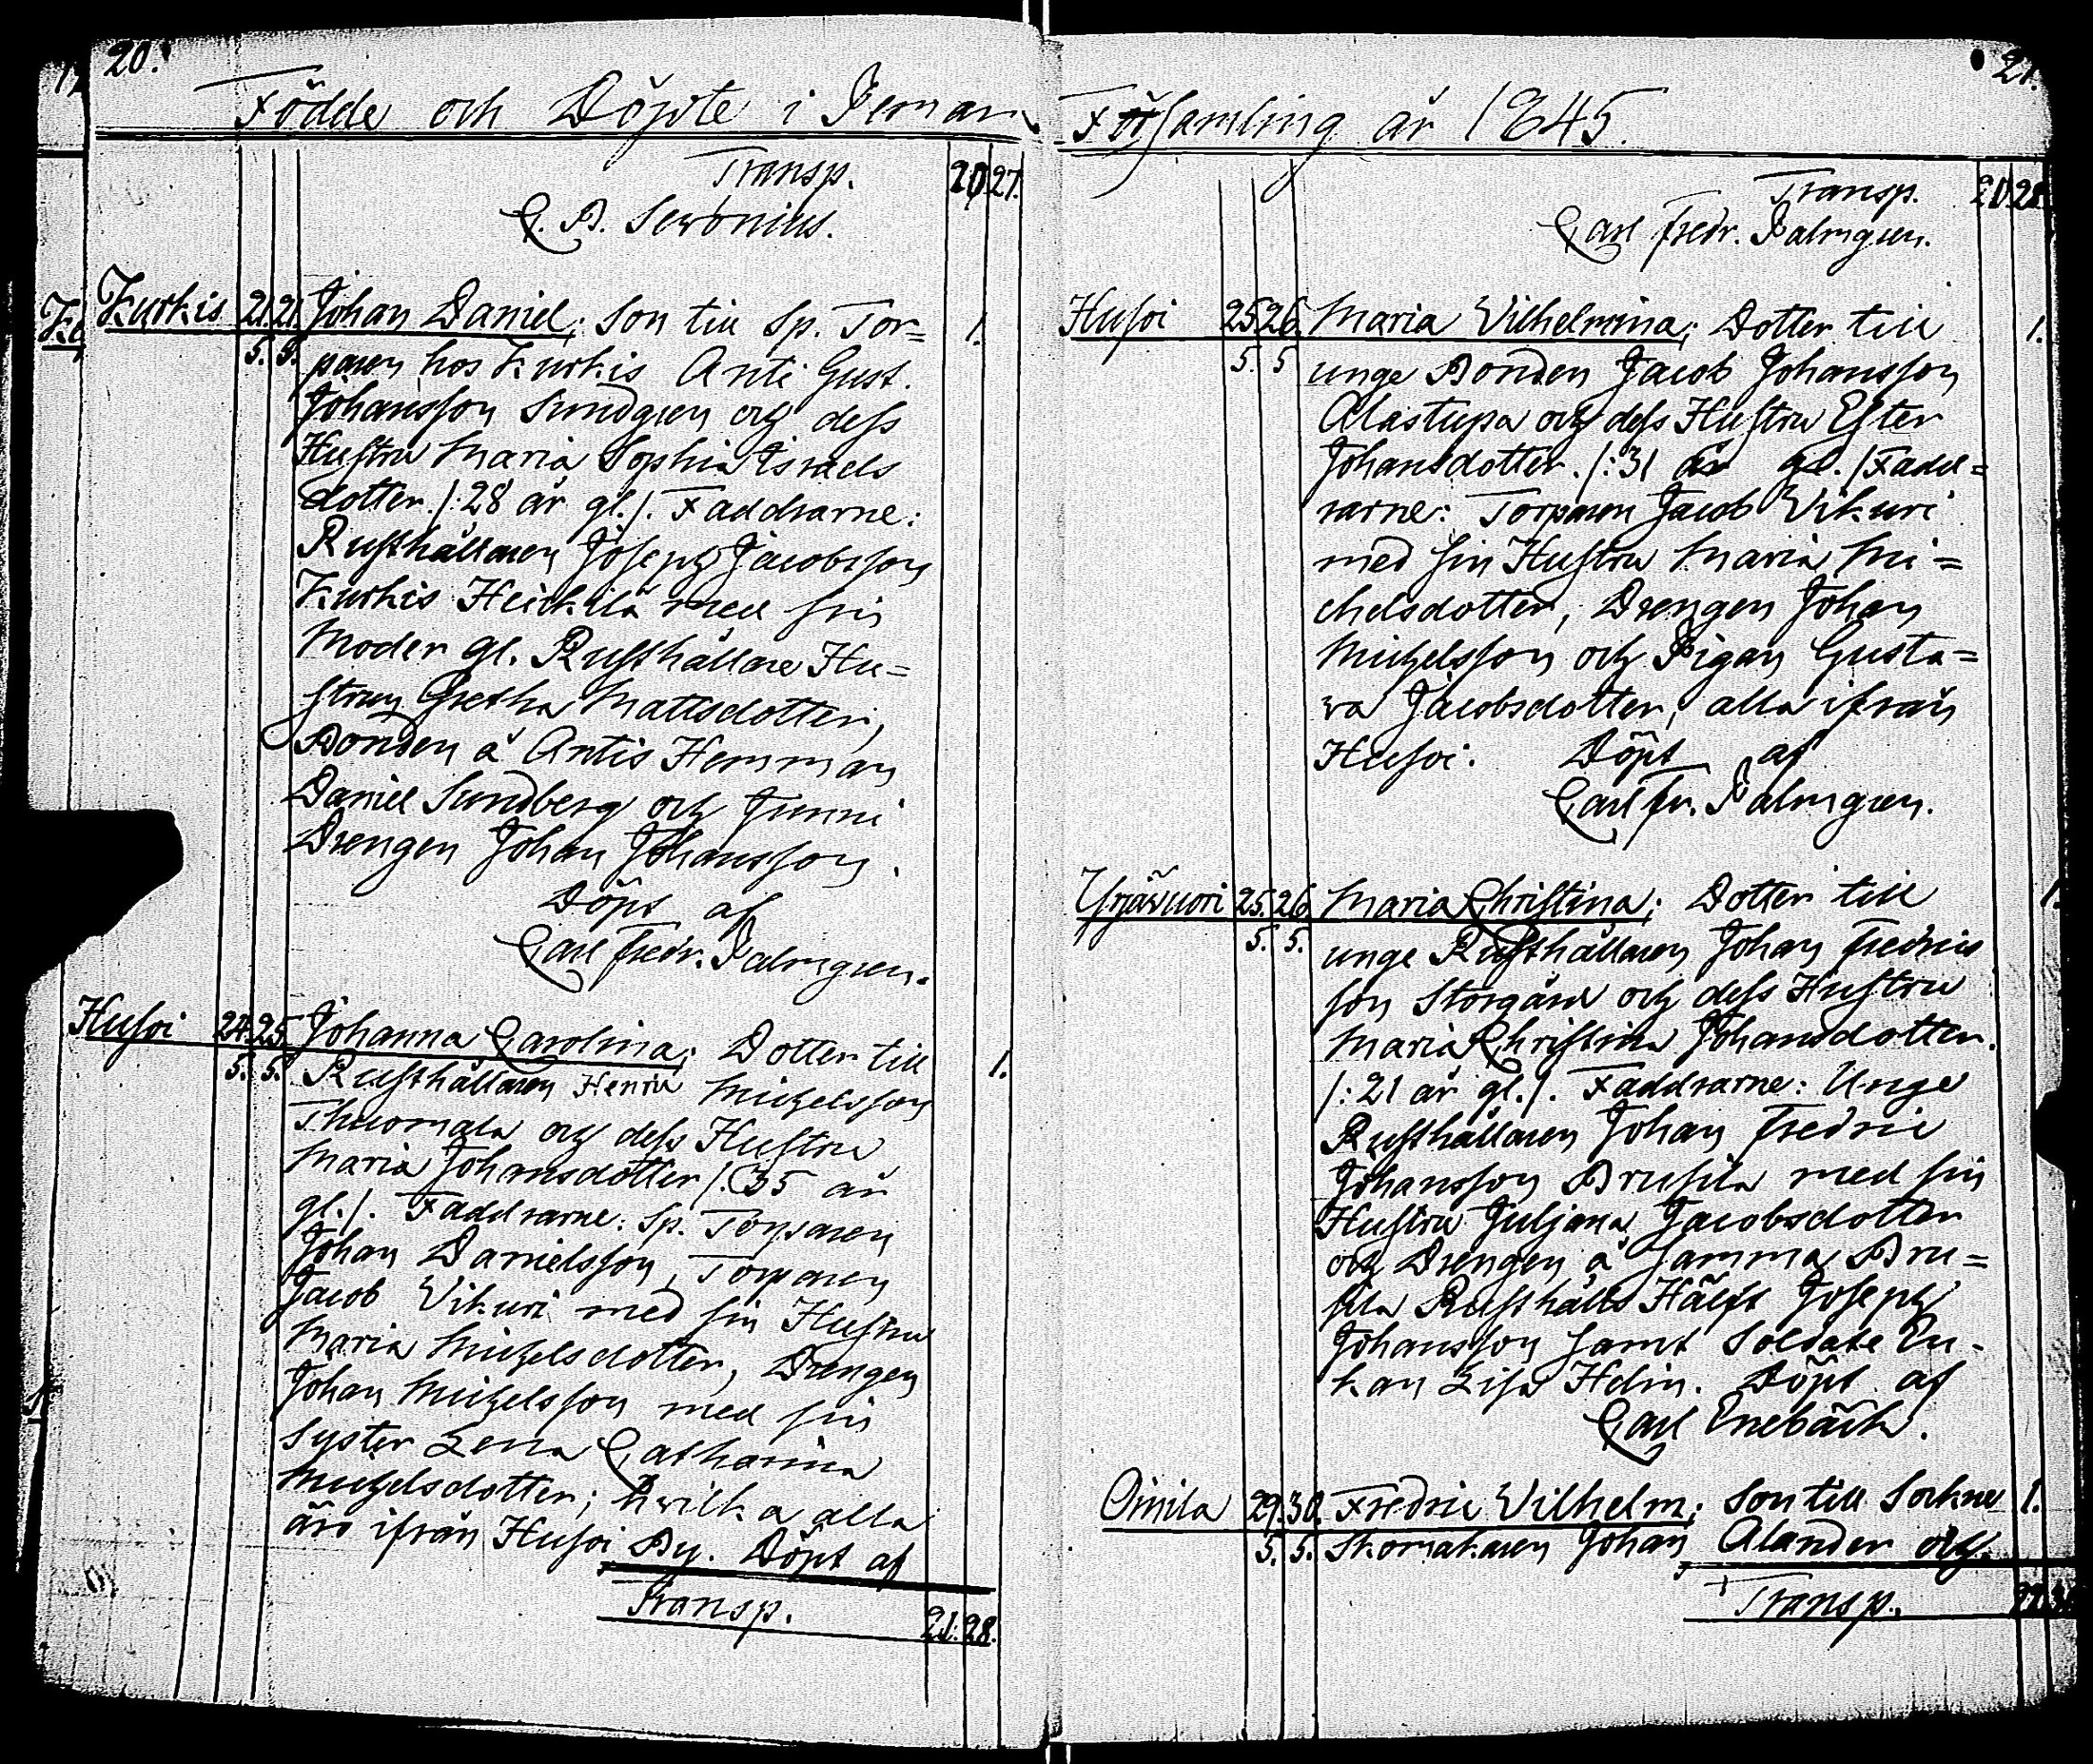 20.
Födde och Döpte i Pemar
Transp. 20 27.
C. B. Seronius.
Kurkis 21. 21. Johan Daniel; Son till Sp. Tor=
5. 5. paren hos Kurkis Anti Gust.
Johansson Sundgren och dess
Hustru Maria Sophia Israels
dotter. /: 28 år gl. /. Faddrarne:
Rusthållaren Joseph Jacobsson
Kurkis Heickilä med sin
Moder gl. Rusthållare Hu=
strun Gretha Mattsdotter,
Bonden å Antis Hemman
Daniel Sundberg och Junni
Drengen Johan Johansson.
Döpt af
Carl Fredr. Palmgren.
Husoi 24. 25. Johanna Carolina; Dotter till 1.
5. 5. Rusthållaren Henric Michelsson
Thuomala och dess Hustru
Maria Johansdotter /: 35 år
gl. /. Faddrarne: Sp. Torparen
Johan Danielsson, Torparen
Jacob Vikuri med sin Hustru
Maria Michelsdotter, Drengen
Johan Michelsson med sin
Syster Lena Catharina
Michelsdotter; hvilka alla
äro ifrån Husoi By. Döpt af
Transp. 21. 28.
21.
Församling år 1845.
Transp. 21. 28.
Carl Fredr. Palmgren.
Husoi 25 26 Maria Vilhelmina; Dotter till 1.
5. 5 unge Bonden Jacob Johansson
Alastupa och dess Hustru Ester
Johansdotter. /: 31 år gl. / Fadd=
rarne: Torparen Jacob Vikuri
med sin Hustru Maria Mi=
chelsdotter, Drengen Johan
Michelsson och Pigan Gusta=
va Jacobsdotter, alla ifrån
Husoi. Döpt af
Carl Fr. Palmgren.
Yrjävuori 25. 26 Maria Christina; Dotter till 1.
5. 5. unge Rusthållaren Johan Fredrics
son Storgård och dess Hustru
Maria Christina Johansdotter.
/: 21 år gl. /. Faddrarne: Unge
Rusthållaren Johan Fredric
Johansson Brusila med sin
Hustru Juljana Jacobsdotter
och Drengen å samma Bru=
sila Rusthålls Hälft Joseph
Johansson samt Soldate En-
kan Lisa Helin. Döpt af
Carl Enebäck.
Oinila 29. 30. Fredric Vilhelm; Son till Sockne 1.
5. 5. Skomakaren Johan Alander och
Transp.